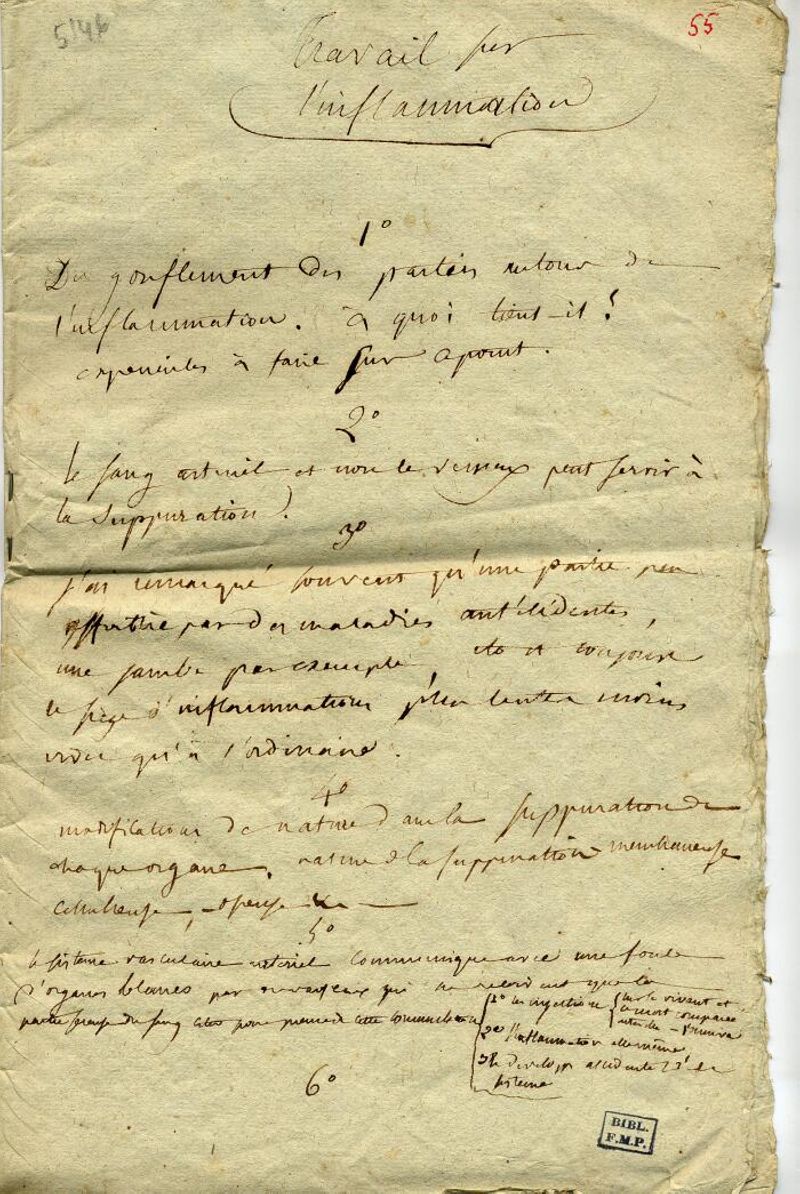 514
55
Travail sur
l'inflammation
1°
Du gonflement des parties autour de
l'inflammation. à quoi tient-il?
à faire sur ce point.
2°
le sang artériel et non le veineux peut servir à
la suppuration.
3°
j'ai remarqué souvent qu'une partie peu
par des maladies antécédentes,
une jambe par exemple, est toujours
le siège d'inflammations plus lentes moins
qu'à l'ordinaire.
4°
modifications de nature dans la suppuration de
chaque organe. nature de la suppuration membraneuse
celluleuse, osseuse
5°
le sisteme vasculaire artériel communique avec une foule
d'organes blancs par des vaisseaux qui ne reçoivent que la
partie sereuse du sang citer pour preuve de cette communication
1° les injections sur le vivant et
le mort comparées
2° l'inflammation elle même
3° le develop accidentel de
sisteme
6°
BIBL.
F.M.P.